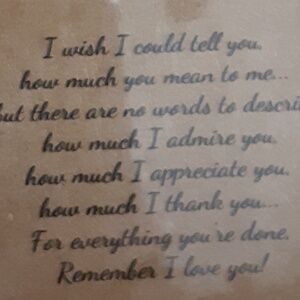 I wish I could tell you,
how much you mean to me...
but there are no words to describe
how much I admire you,
how much I appreciate you,
how much I thank you...
For everything you're done,
Remember I love you!